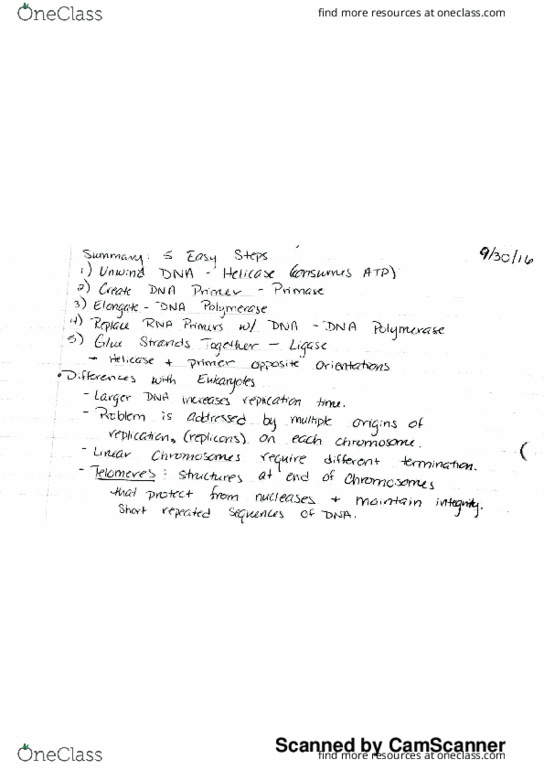 OneClass
find more resources at oneclass.com
Summary: 5 Easy Steps
9/30/16
1) Unwind DNA - Helicase (consumes ATP)
2) Create DNA Primer - Primase
3) Elongate - DNA Polymerase
4) Replace RNA Primers w/ DNA - DNA Polymerase
5) Glue Strands Together - Ligase
→ Helicase + primer opposite orientations
• Differences with Eukaryotes
- Larger DNA increases replication time.
- Problem is addressed by multiple origins of
replication, (replicons) on each chromosome.
- Linear Chromosomes require different termination.
- Telomeres: structures at end of chromosomes
that protect from nucleases + maintain integrity.
Short repeated sequences of DNA.
Scanned by CamScanner
OneClass
find more resources at oneclass.com